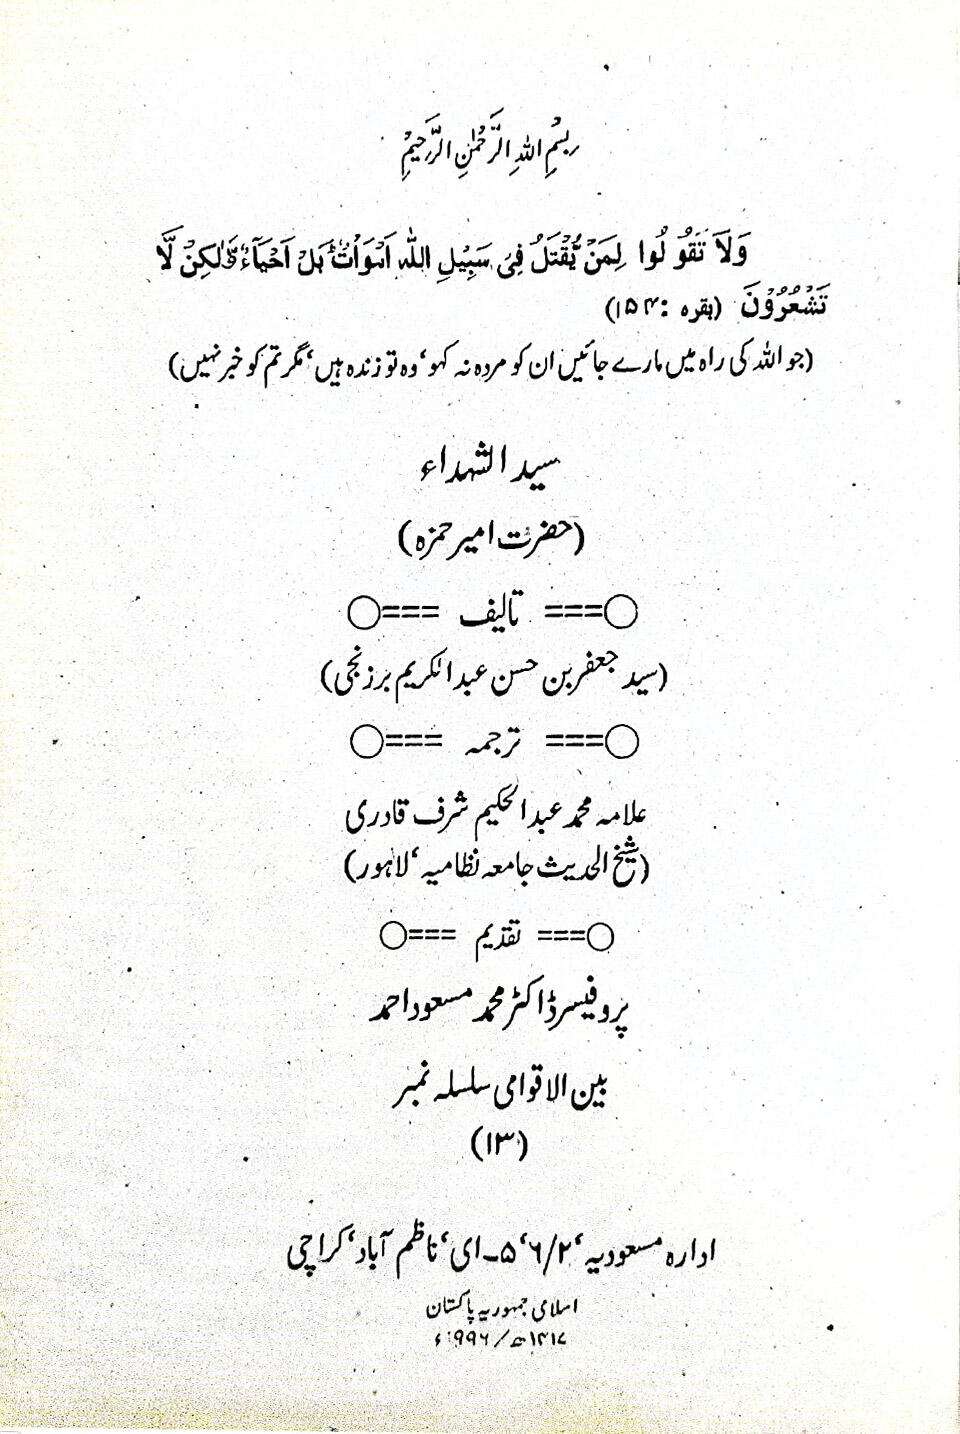 بِسْمِ اللهِ الرَّحْمٰنِ الرَّحِيْمِ
وَلَا تَقُوْلُوا لِمَنْ يُّقْتَلُ فِیْ سَبِيْلِ اللّٰه اَمْوَاتٌ بَلْ اَحْيَآءٌ وَّلٰكِنْ لَّا
تَشْعُرُوْنَ (بقرہ : ۱۵۴)
(جو اللہ کی راہ میں مارے جائیں ان کو مردہ نہ کہو‘ وہ تو زندہ ہیں‘ مگر تم کو خبر نہیں)
سید الشہداء
(حضرت امیر حمزہ)
○=== تالیف ===○
(سید جعفر بن حسن عبدالکریم برزنجی)
○=== ترجمہ ===○
علامہ محمد عبدالحکیم شرف قادری
(شیخ الحدیث جامعہ نظامیہ‘ لاہور)
○=== تقدیم ===○
پروفیسر ڈاکٹر محمد مسعود احمد
بین الاقوامی سلسلہ نمبر
(۱۳)
ادارہ مسعودیہ‘ ۶/۲‘ ۵۔ای‘ ناظم آباد‘ کراچی
اسلامی جمہوریہ پاکستان
۱۴۱۷ھ/۱۹۹۶ء